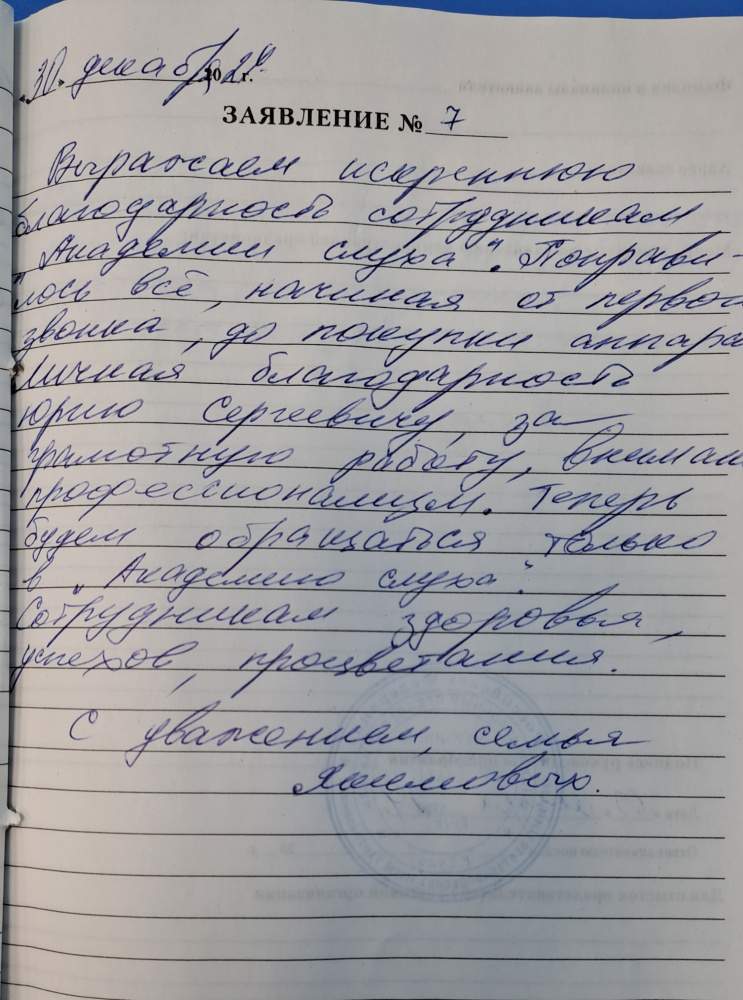 "30" декабря 2024 г.
ЗАЯВЛЕНИЕ № 7
Выражаем искреннюю
благодарность сотрудникам
"Академии слуха". Понрави-
лось всё, начиная от первого
звонка, до покупки аппара
Личная благодарность
Юрию Сергеевичу, за
грамотную работу, вниман
профессионализм. Теперь
будем обращаться только
в "Академию слуха".
Сотрудникам здоровья,
успехов, процветания.
С уважением, семья